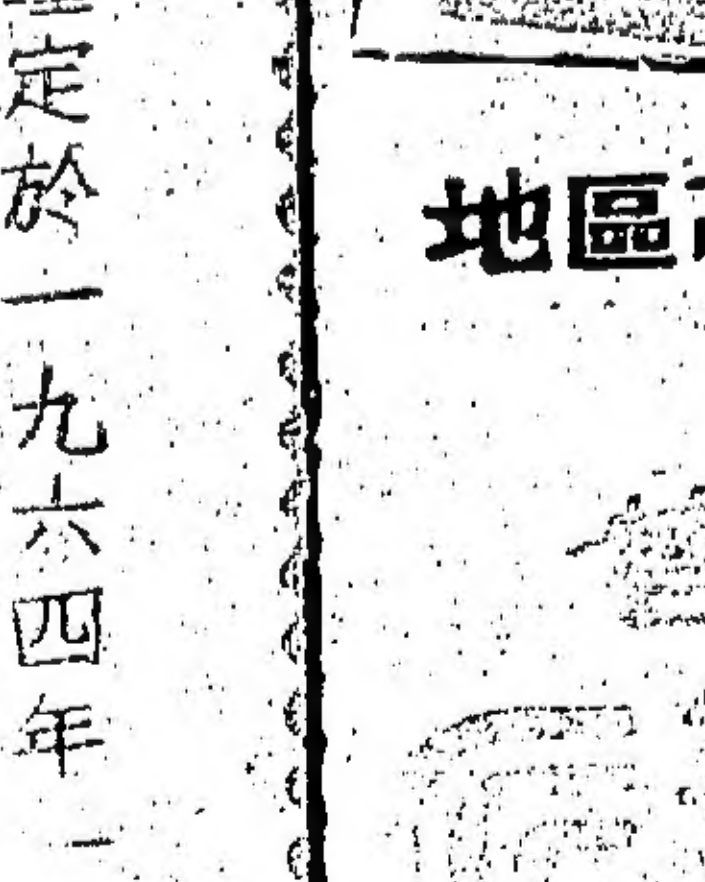 定於一九六四年一
地區